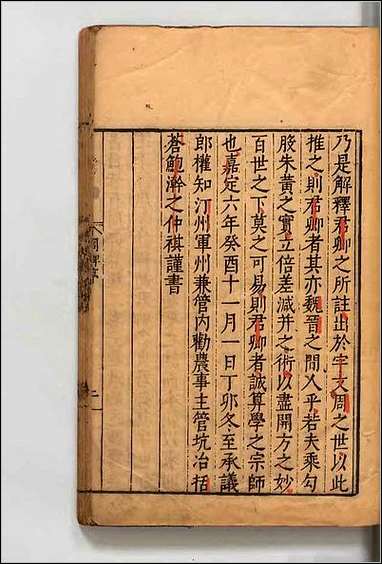 乃是解釋君卿之所註出於宇文周之世以此
推之則君卿者其亦魏晉之間人乎若夫乘勾
股朱黃之實立倍差減并之術以盡開方之妙
百世之下莫之可易則君卿者誠算學之宗師
也嘉定六年癸酉十一月一日丁卯冬至承議
郎權知汀州軍州兼管內勸農事主管坑冶括
蒼鮑澣之仲祺謹書